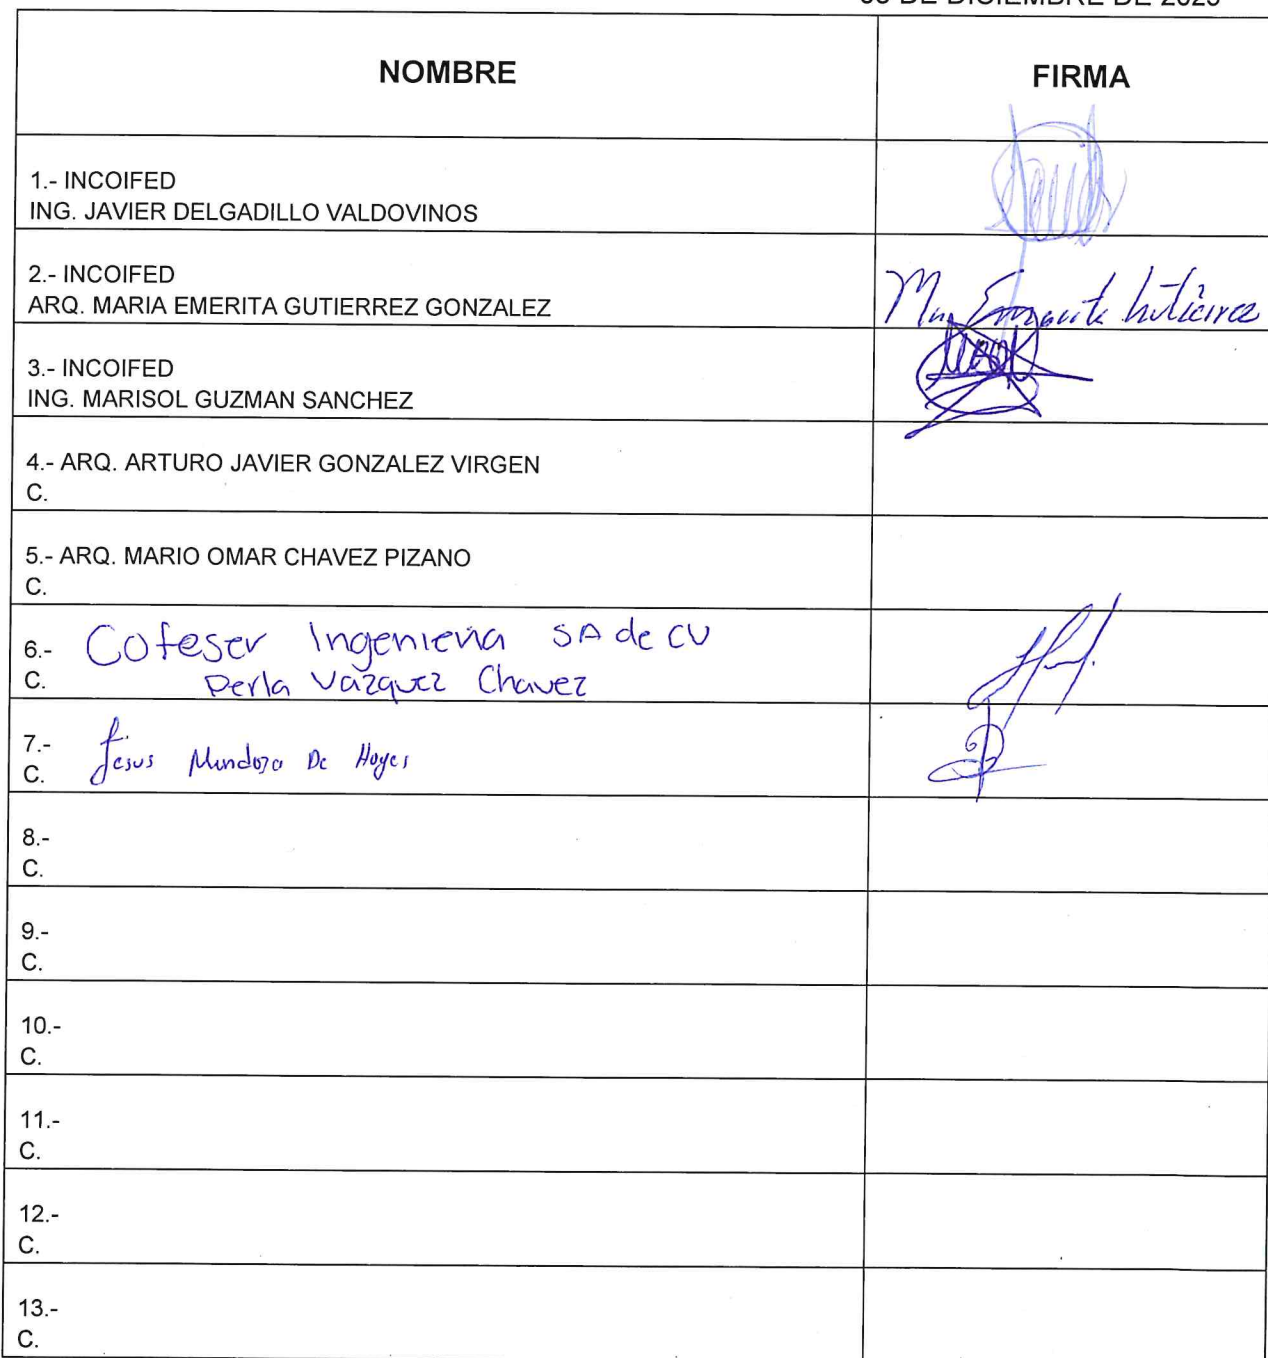 DE DICIEMBRE DE 2023
NOMBRE
FIRMA
1.- INCOIFED
ING. JAVIER DELGADILLO VALDOVINOS
2.- INCOIFED
ARQ. MARIA EMERITA GUTIERREZ GONZALEZ
Ma Emerita Gutiérrez
3.- INCOIFED
ING. MARISOL GUZMAN SANCHEZ
4.- ARQ. ARTURO JAVIER GONZALEZ VIRGEN
C.
5.- ARQ. MARIO OMAR CHAVEZ PIZANO
C.
6.- Cofeser Ingenieria SA de CV
C. Perla Vázquez Chavez
7.- Jesus Mendoza De Hoyos
C.
8.-
C.
9.-
C.
10.-
C.
11.-
C.
12.-
C.
13.-
C.